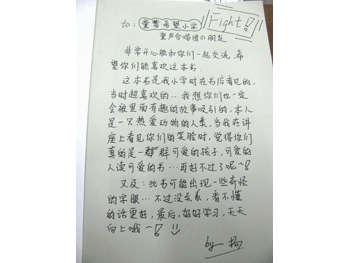 to: 童馨希望小学 Fight!
童声合唱团の朋友
非常开心能和你们一起交流,希
望你们能喜欢这本书.
这本书是我小学时在书店看见的,
当时超喜欢的...我想你们也一定
会被里面有趣的故事吸引的.本人
是一只热爱动物的人类,当我在讲
座上看见你们的笑脸时,觉得你们
真的是一群可爱的孩子,可爱的
人读可爱的书...再好不过了呢~!
又及:此书可能出现一些奇怪
的字眼...不过没关系,看不懂
的话更好,最后,好好学习,天天
向上哦~!
by